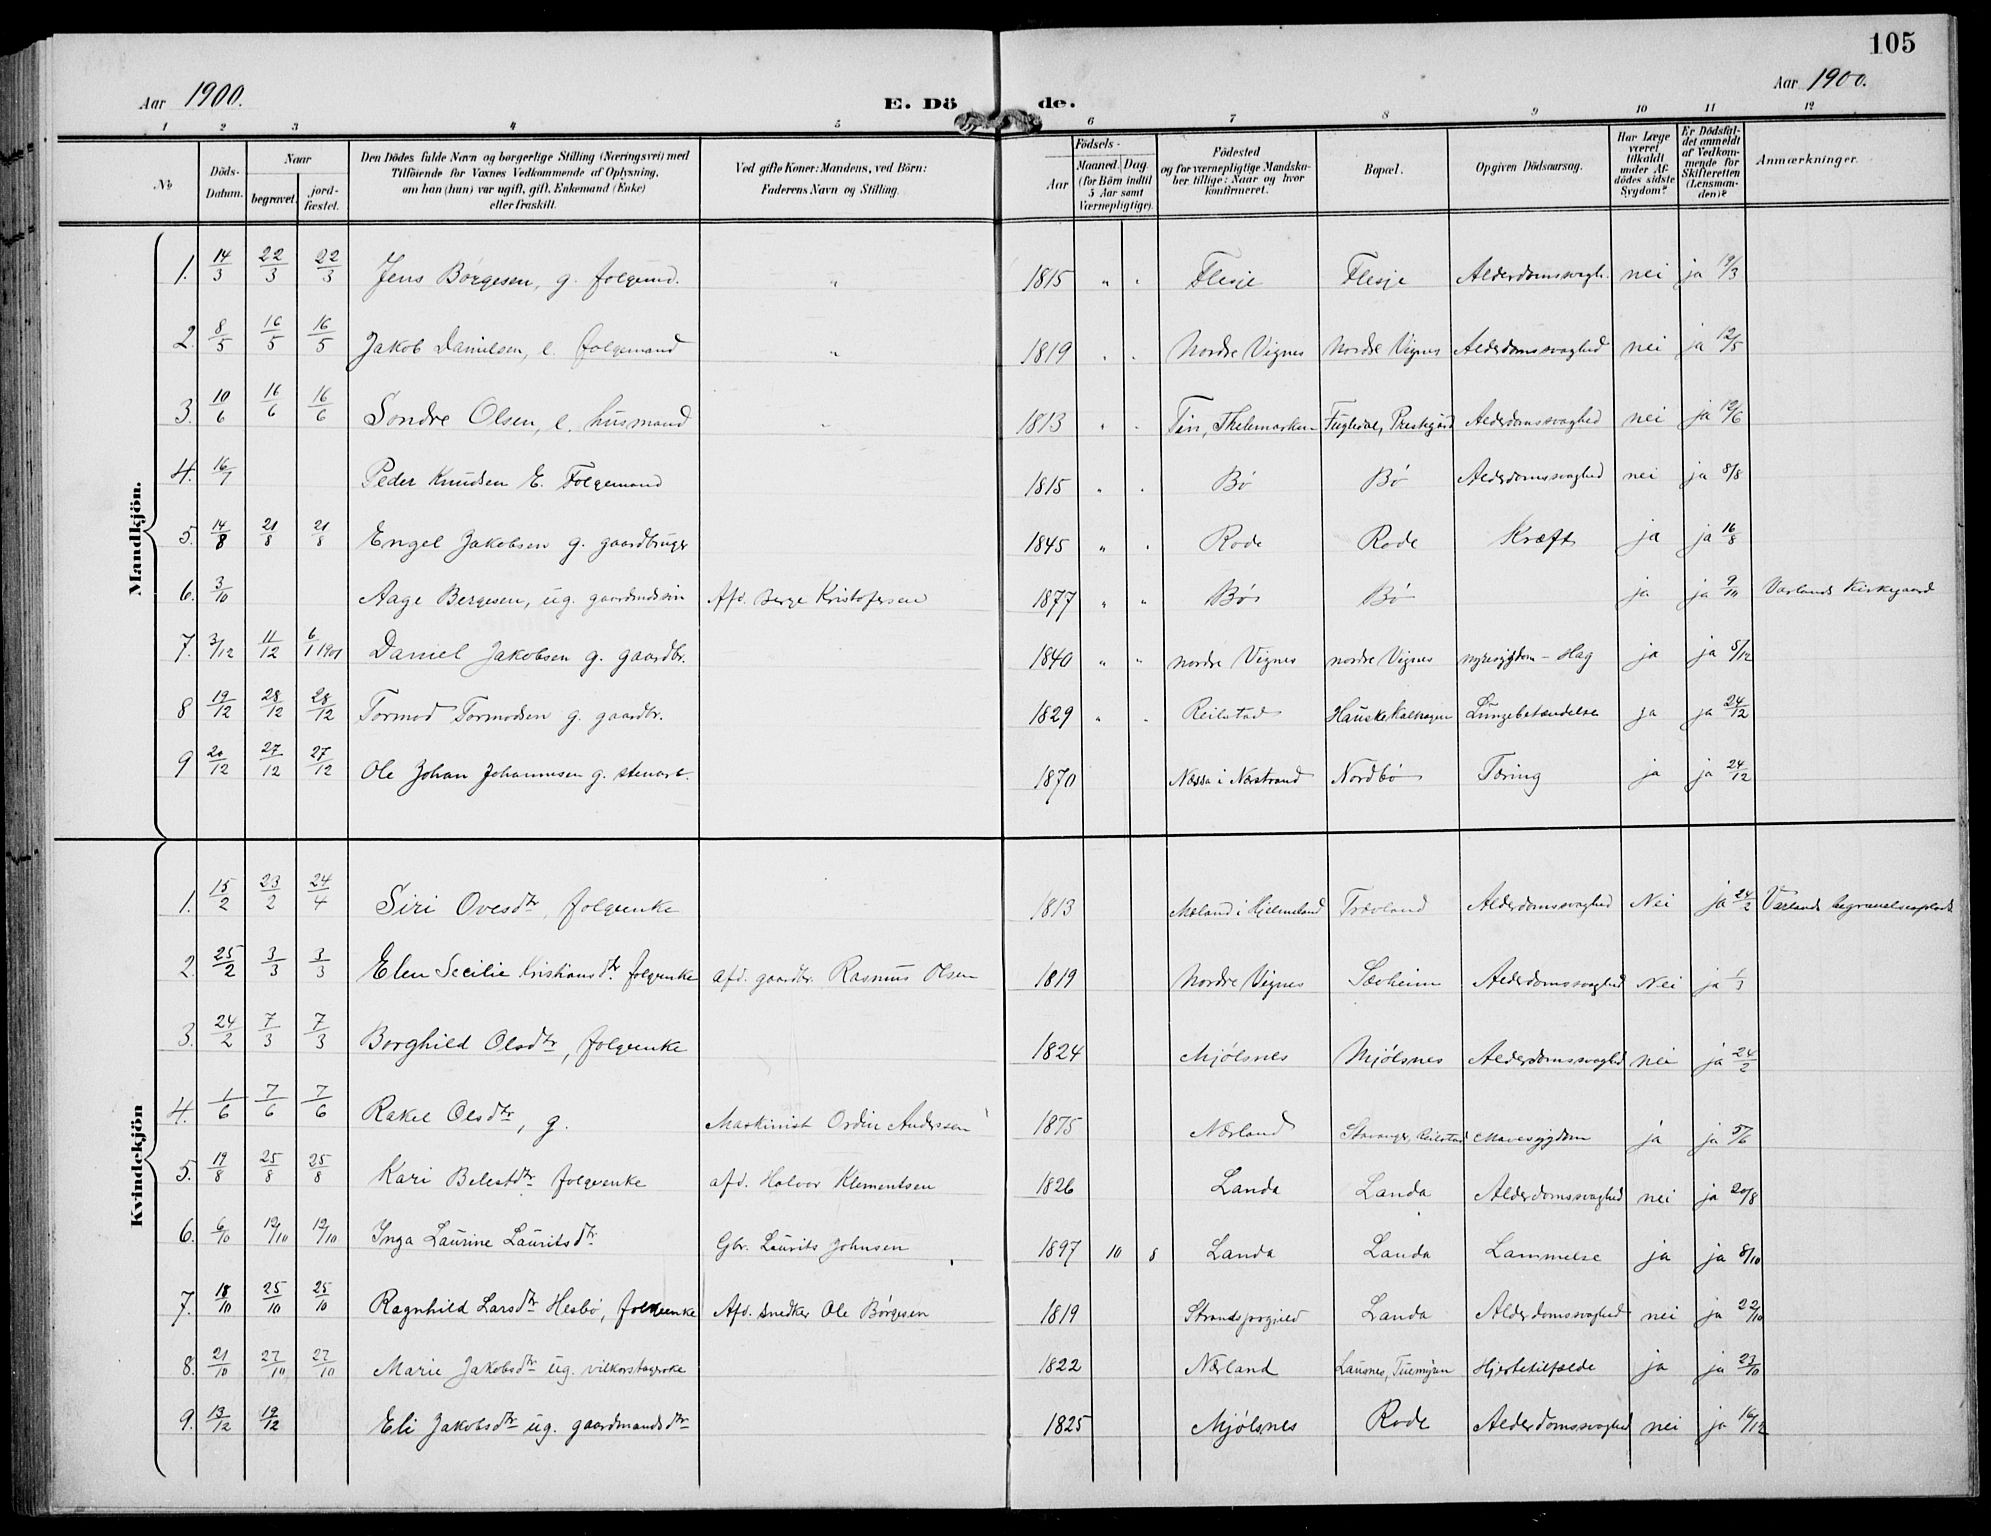 105
Aar 1900.
E. Dö de.
Aar 1900.
1 2 3 4 5 6 7 8 9 10 11 12
No
Döds-Datum.
Naar
begravet.
jord-fæstet.
Den Dödes fulde Navn og borgerlige Stilling (Næringsvei) med
Tilföiende for Voxnes Vedkommende af Oplysning,
om han (hun) var ugift, gift, Enkemand (Enke)
eller fraskilt.
Ved gifte Koner: Mandens, ved Börn:
Faderens Navn og Stilling.
Födsels-
Aar
Maaned. Dag
(for Börn indtil
5 Aar samt
Værnepligtige).
Födested
og for værnepligtige Mandska-
ber tillige: Naar og hvor
konfirmeret.
Bopæl.
Opgiven Dödsaarsag.
Har Læge
været
tilkaldt
under Af-
dödes sidste
Sygdom?
Er Dödsfal-
det anmeldt
af Vedkom-
mende for
Skifteretten
(Lensman-
den)?
Anmærkninger.
Mandkjön.
1. 14/3 22/3 22/3 Jens Børgesen, g. folgemd. " 1815 " " Flesje Flesje Alderdomssvagh. nei ja 19/3
2. 8/5 16/5 16/5 Jakob Danielsen, e. folgemand " 1819 " " Nordre Vignes Nordre Vignes Alderdomssvaghed nei ja 12/5
3. 10/6 16/6 16/6 Sondre Olsen, e. husmand " 1813 " " Tin, Thelemarken Fugledal, Prestegård Alderdomssvaghed nei ja 12/6
4. 16/7 Peder Knudsen E. Folgemand 1815 " " Bø Bø Alderdomssvaghed nei ja 8/8
5. 14/8 21/8 21/8 Engel Jakobsen g. gaardbruger 1845 " " Rode Rode Kræft ja ja 16/8
6. 3/10 Aage Bergesen, ug. gaardmdssøn Afd. Berge Kristofersen 1877 " " Bø Bø ja ja 9/10 Varlands Kirkegaard
7. 3/12 11/12 6/1 1901 Daniel Jakobsen g. gaardbr. 1840 " " nordre Vignes nordre Vignes nyresygdom - Slag ja ja 5/12
8 19/12 28/12 28/12 Tormod Tormodsen g. gaardbr. 1829 " " Reilstad Hauske Lungebetændelse ja ja 24/12
9 20/12 27/12 27/12 Ole Johan Johannesen g. stenarb. 1870 Næssa i Nærstrand Nordbø Tæring ja ja 24/12
Kvindekjön
1. 15/2 23/2 24/4 Siri Ovesdtr, folgeenke 1813 Mæland i Hjelmeland Trævland Alderdomssvaghed Nei ja 24/2 Varlands begravelsesplads
2. 25/2 3/3 3/3 Elen Secilie Kristiansdtr folgeenke afd. gaardbr. Rasmus Olsen 1819 Nordre Vignes Sævheim Alderdomssvaghed Nei ja 1/3
3. 24/2 7/3 7/3 Borghild Olsdtr, folgeenke 1824 Mjølsnes Mjølsnes Alderdomssvaghed nei ja 24/2
4. 1/6 7/6 7/6 Rakel Olsdtr, g. Maskinist Ordin Anderssen 1875 Nærland Stavanger, Reilstad Mavesygdom ja ja 5/6
5. 19/8 25/8 25/8 Kari Belestdtr folgeenke afd. Halvor Klementsen 1826 Landa Landa Alderdomssvaghed nei ja 20/8
6. 6/10 12/10 12/10 Inga Laurine Lauritsdtr Gbr. Laurits Johnsen 1897 10 8 Landa Landa Lammelse ja ja 8/10
7. 18/10 25/10 25/10 Ragnhild Larsdtr Hesbø, folgeenke Afd. snedker Ole Børgesen 1819 Strands prgjeld Landa Alderdomssvaghed nei ja 22/10
8. 21/10 27/10 27/10 Marie Jakobsdtr ug. vilkorstagerske 1822 Nærland Lausnes, Tuemyren Hjertetilfælde ja ja 23/10
9. 13/12 19/12 Eli Jakobsdtr ug. gaardmandsdtr 1825 Mjølsnes Rode Alderdomssvaghed nei ja 16/12